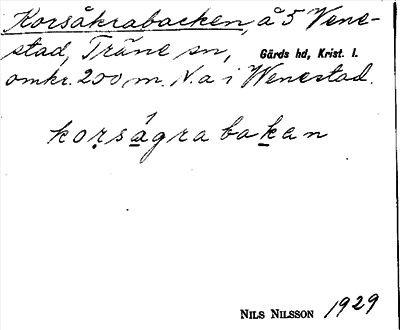 Korsåkrabacken, å 5 Vene-
stad, Träne sn, Gärds hd, Krist. l.
omkr. 200 m. N. a i Wenestad.
korságrabakan
NILS NILSSON 1929